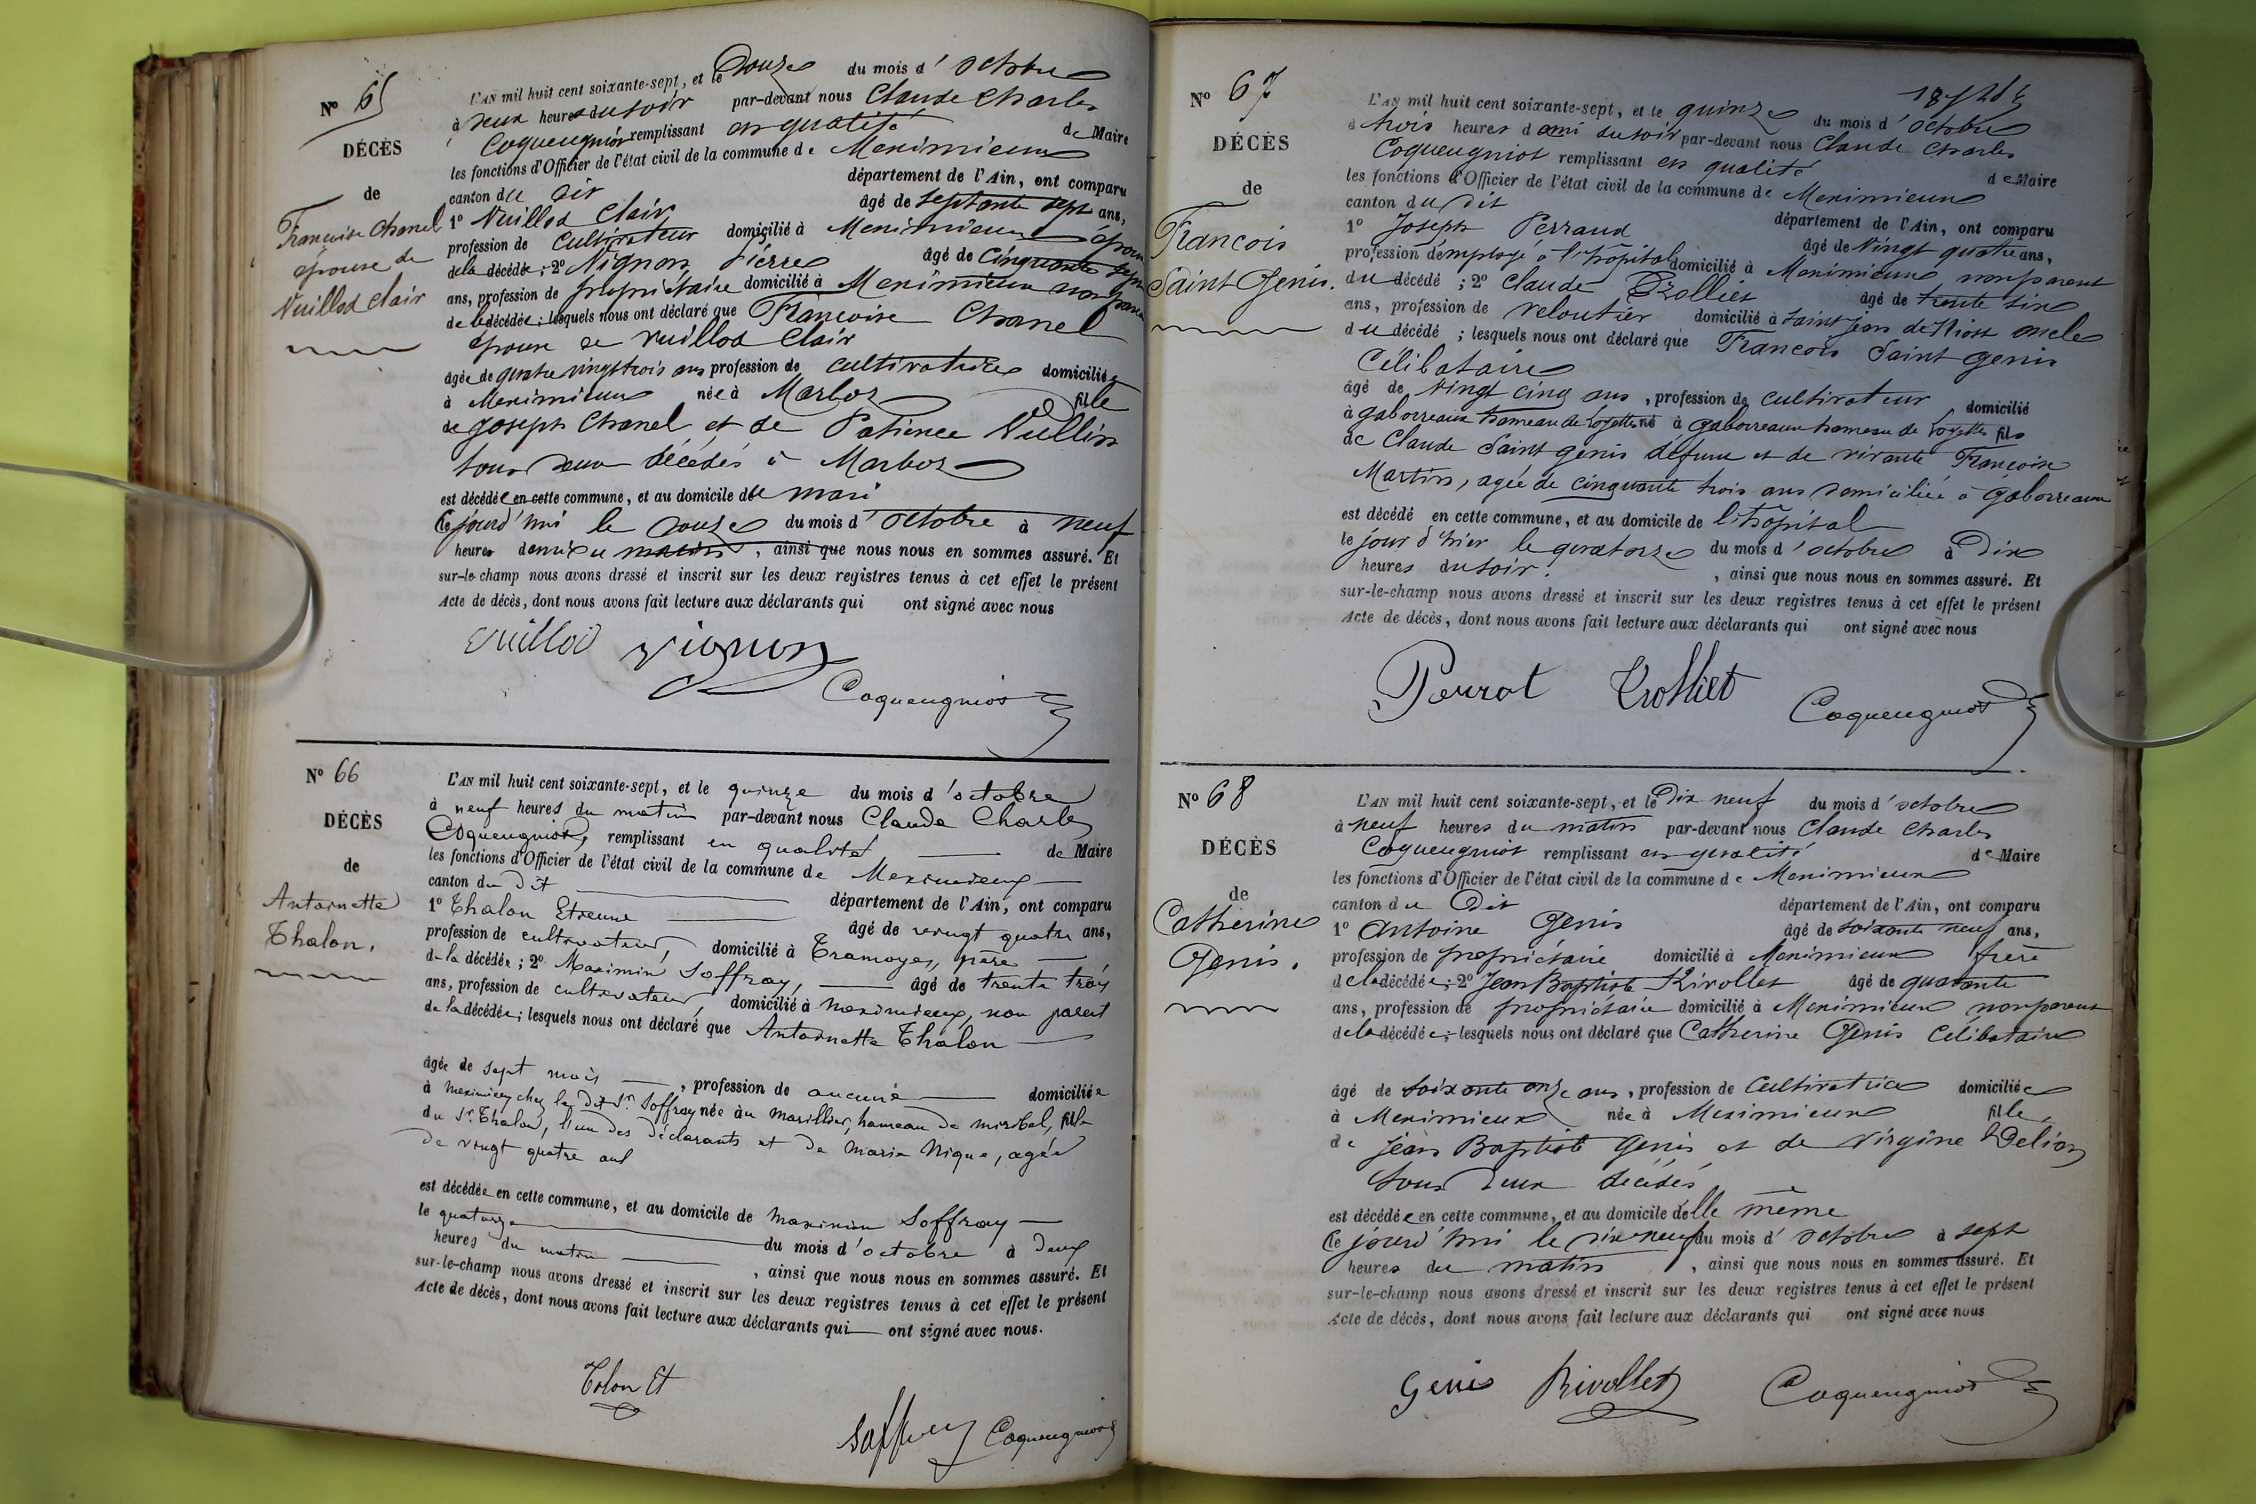 Nº 65
DÉCÈS
de
Françoise Chanel
épouse de
Vuillod Clair
L'AN mil huit cent soixante-sept, et le Douze du mois d'octobre
à deux heures du soir par-devant nous Claude Charles
Coqueugniot remplissant en qualité de Maire
les fonctions d'Officier de l'état civil de la commune de Meximieux
canton du dit département de l'Ain, ont comparu
1º Vuillod Clair âgé de septante sept ans,
profession de Cultivateur domicilié à Meximieux époux
de la décédée ; 2º Vignon Pierre âgé de cinquante sept
ans, profession de propriétaire domicilié à Meximieux non parent
de la décédée ; lesquels nous ont déclaré que Françoise Chanel
épouse de Vuillod Clair
âgée de quatre vingt trois ans profession de cultivatrice domiciliée
à Meximieux née à Marboz fille
de Joseph Chanel et de Patience Vullin
tous deux décédés à Marboz
est décédée en cette commune, et au domicile de le mari
Ce jourd'hui le douze du mois d'octobre à neuf
heures demi du matin, ainsi que nous nous en sommes assuré. Et
sur-le-champ nous avons dressé et inscrit sur les deux registres tenus à cet effet le présent
Acte de décès, dont nous avons fait lecture aux déclarants qui ont signé avec nous
Vuillod Vignon
Coqueugniot
Nº 66
DÉCÈS
de
Antoinette
Thalon.
L'AN mil huit cent soixante-sept, et le quinze du mois d'octobre
à neuf heures du matin par-devant nous Claude Charles
Coqueugniot, remplissant en qualité de Maire
les fonctions d'Officier de l'état civil de la commune de Meximieux
canton du dit département de l'Ain, ont comparu
1º Thalon Etienne âgé de vingt quatre ans,
profession de cultivateur, domicilié à Tramoyes, père
de la décédée ; 2º Maximin Soffray, âgé de trente troiy
ans, profession de cultivateur, domicilié à Meximieux, non parent
de la décédée ; lesquels nous ont déclaré que Antoinette Thalon
âgée de sept mois, profession de aucune domiciliée
à Meximieux chez le dit Sr. Soffray née au Marillier, hameau de Miribel, fille
du Sr. Thalon, l'un des déclarants et de Marie Nique, agée
de vingt quatre ans
est décédée en cette commune, et au domicile de Maximin Soffray
le quatorze du mois d'octobre à deux
heures du matin, ainsi que nous nous en sommes assuré. Et
sur-le-champ nous avons dressé et inscrit sur les deux registres tenus à cet effet le présent
Acte de décès, dont nous avons fait lecture aux déclarants qui ont signé avec nous.
Tolon Et
Soffrey Coqueugniot
Nº 67
DÉCÈS
de
François
Saint Genis.
L'AN mil huit cent soixante-sept, et le quinze du mois d'octobre
à trois heures demi du soir par-devant nous Claude Charles
Coqueugniot remplissant en qualité de Maire
les fonctions d'Officier de l'état civil de la commune de Meximieux
canton du dit département de l'Ain, ont comparu
1º Joseph Perraud âgé de Vingt quatre ans,
profession d'employé à l'hôpital domicilié à Meximieux non parent
du décédé ; 2º Claude Trollier âgé de trente six
ans, profession de veloutier domicilié à Saint Jean de Niost oncle
du décédé ; lesquels nous ont déclaré que François Saint Genis
Célibataire
âgé de Vingt cinq ans, profession de cultivateur domicilié
à gaborreaux hameau de Loyettes né à gaborreaux hameau de Loyettes fils
de Claude Saint genis défunt et de vivante Françoise
Martin, agée de cinquante trois ans domiciliée à gaborreaux
est décédé en cette commune, et au domicile de l'hôpital
le jour d'hier le quatorze du mois d'octobre à Dix
heures du soir, ainsi que nous nous en sommes assuré. Et
sur-le-champ nous avons dressé et inscrit sur les deux registres tenus à cet effet le présent
Acte de décès, dont nous avons fait lecture aux déclarants qui ont signé avec nous
Perrot Trolliet Coqueugniot
Nº 68
DÉCÈS
de
Catherine
Genis.
L'AN mil huit cent soixante-sept, et le Dix neuf du mois d'octobre
à neuf heures du matin par-devant nous Claude Charles
Coqueugniot remplissant en qualité de Maire
les fonctions d'Officier de l'état civil de la commune de Meximieux
canton du Dit département de l'Ain, ont comparu
1º Antoine Genis âgé de soixante neuf ans,
profession de propriétaire domicilié à Meximieux frère
de la décédée ; 2º Jean Baptiste Rivollet âgé de quarante
ans, profession de propriétaire domicilié à Meximieux non parent
de la décédée ; lesquels nous ont déclaré que Catherine Genis Célibataire
âgé de soixante onze ans, profession de Cultivatrice domiciliée
à Meximieux née à Meximieux fille
de Jean Baptiste Genis et de Virgine Delion
tous deux décédés
est décédée en cette commune, et au domicile d'elle même
Ce jourd'hui le dix neuf du mois d'octobre à sept
heures du matin, ainsi que nous nous en sommes assuré. Et
sur-le-champ nous avons dressé et inscrit sur les deux registres tenus à cet effet le présent
Acte de décès, dont nous avons fait lecture aux déclarants qui ont signé avec nous
Genis Rivollet Coqueugniot